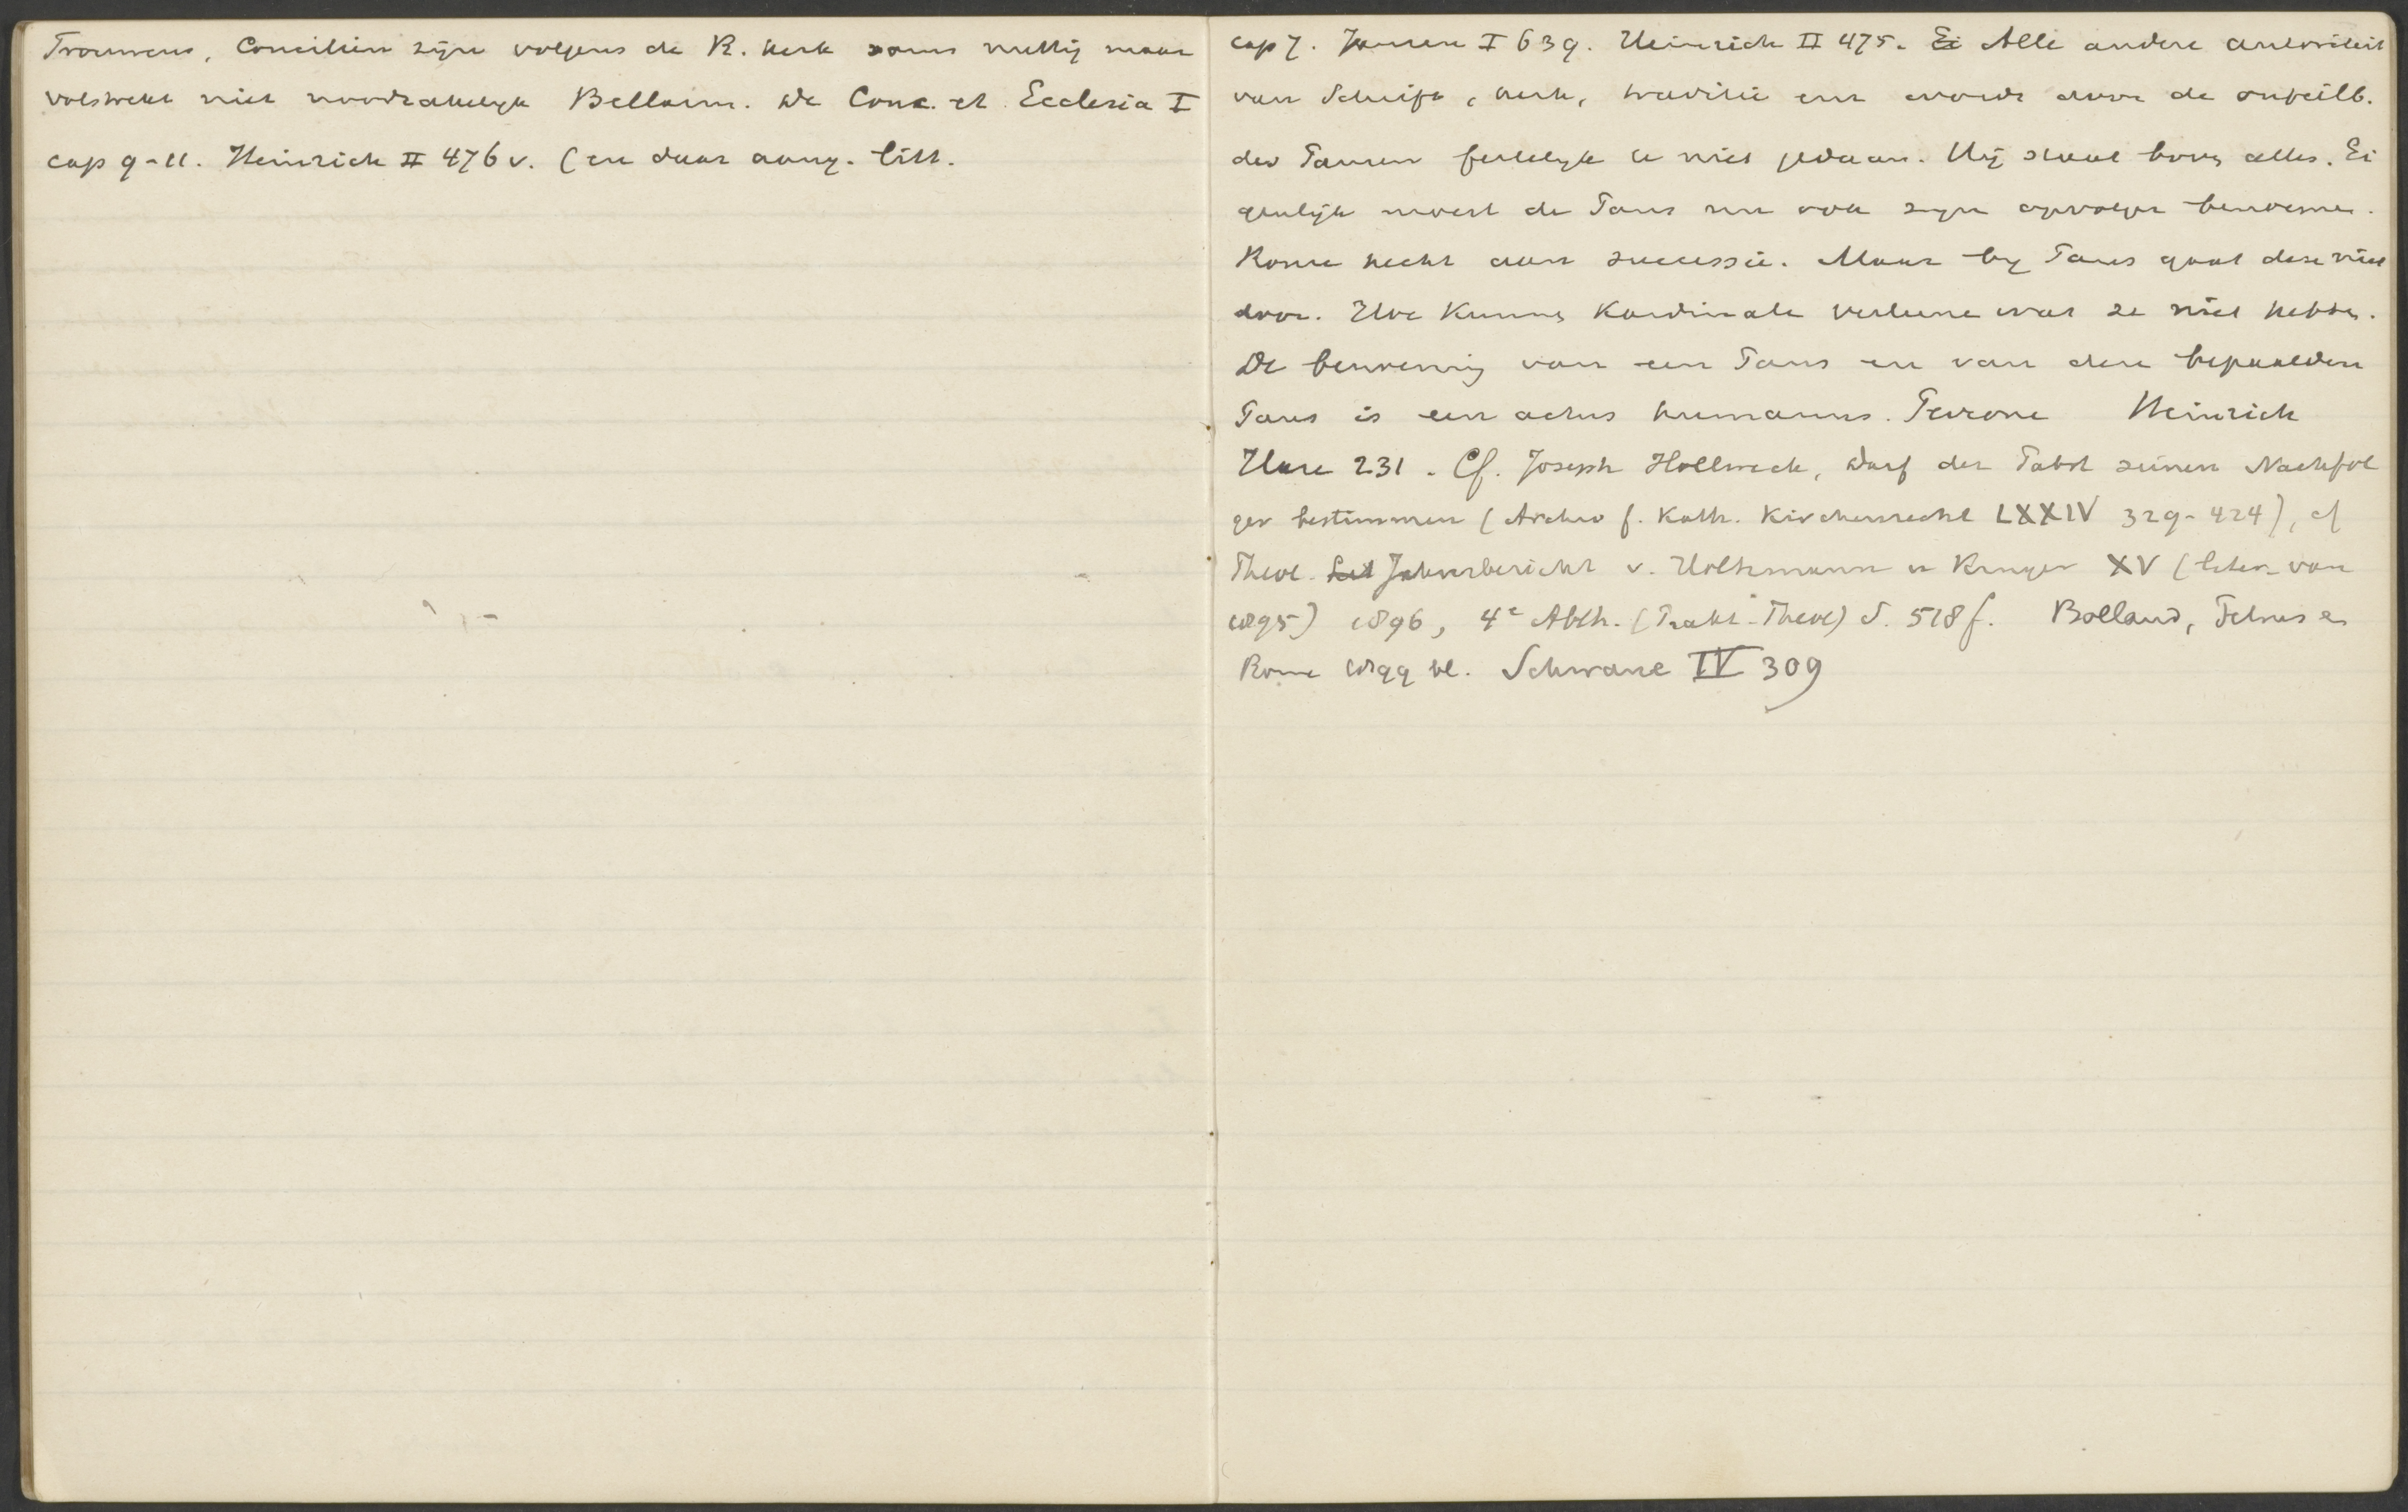 Trouwens, Conciliën zijn volgens de R. kerk soms nuttig maar
volstrekt niet noodzakelijk Bellarm. de Conc. et Ecclesia I
cap 9-11. Heinrich II 476 v. (en daar aang. litt.
cap 7. Jansen I 639. Heinrich II 475. Ei Alle andere autoriteit
van Schrift, kerk, traditie enz wordt door de onfeilb.
des Pausen feitelijk te niet gedaan. Hij staat boven alles. Ei
genlijk moest de Paus nu ook zijn opvolger benoemen.
Rome hecht aan successie. Maar bij Paus gaat deze niet
door. Hoe kunnen Kardinale verleene wat ze niet hebben.
De benoeming van een Paus en van dezen bepaalden
Paus is een actus humanus. Perrone Heinrich
Hase 231. Cf. Joseph Hollweck, Darf der Pabst seinen Nachfol
ger bestimmen (Archiv f. Kath. Kirchenrecht LXXIV 329-424), cf
Theol. Jahresbericht v. Holtzmann u Kruger XV (liter. van
1895) 1896, 4e Abth. (Prakt-Theol) S. 518 f. Bolland, Petrus en
Rome 1899 bl. Schwane IV 309